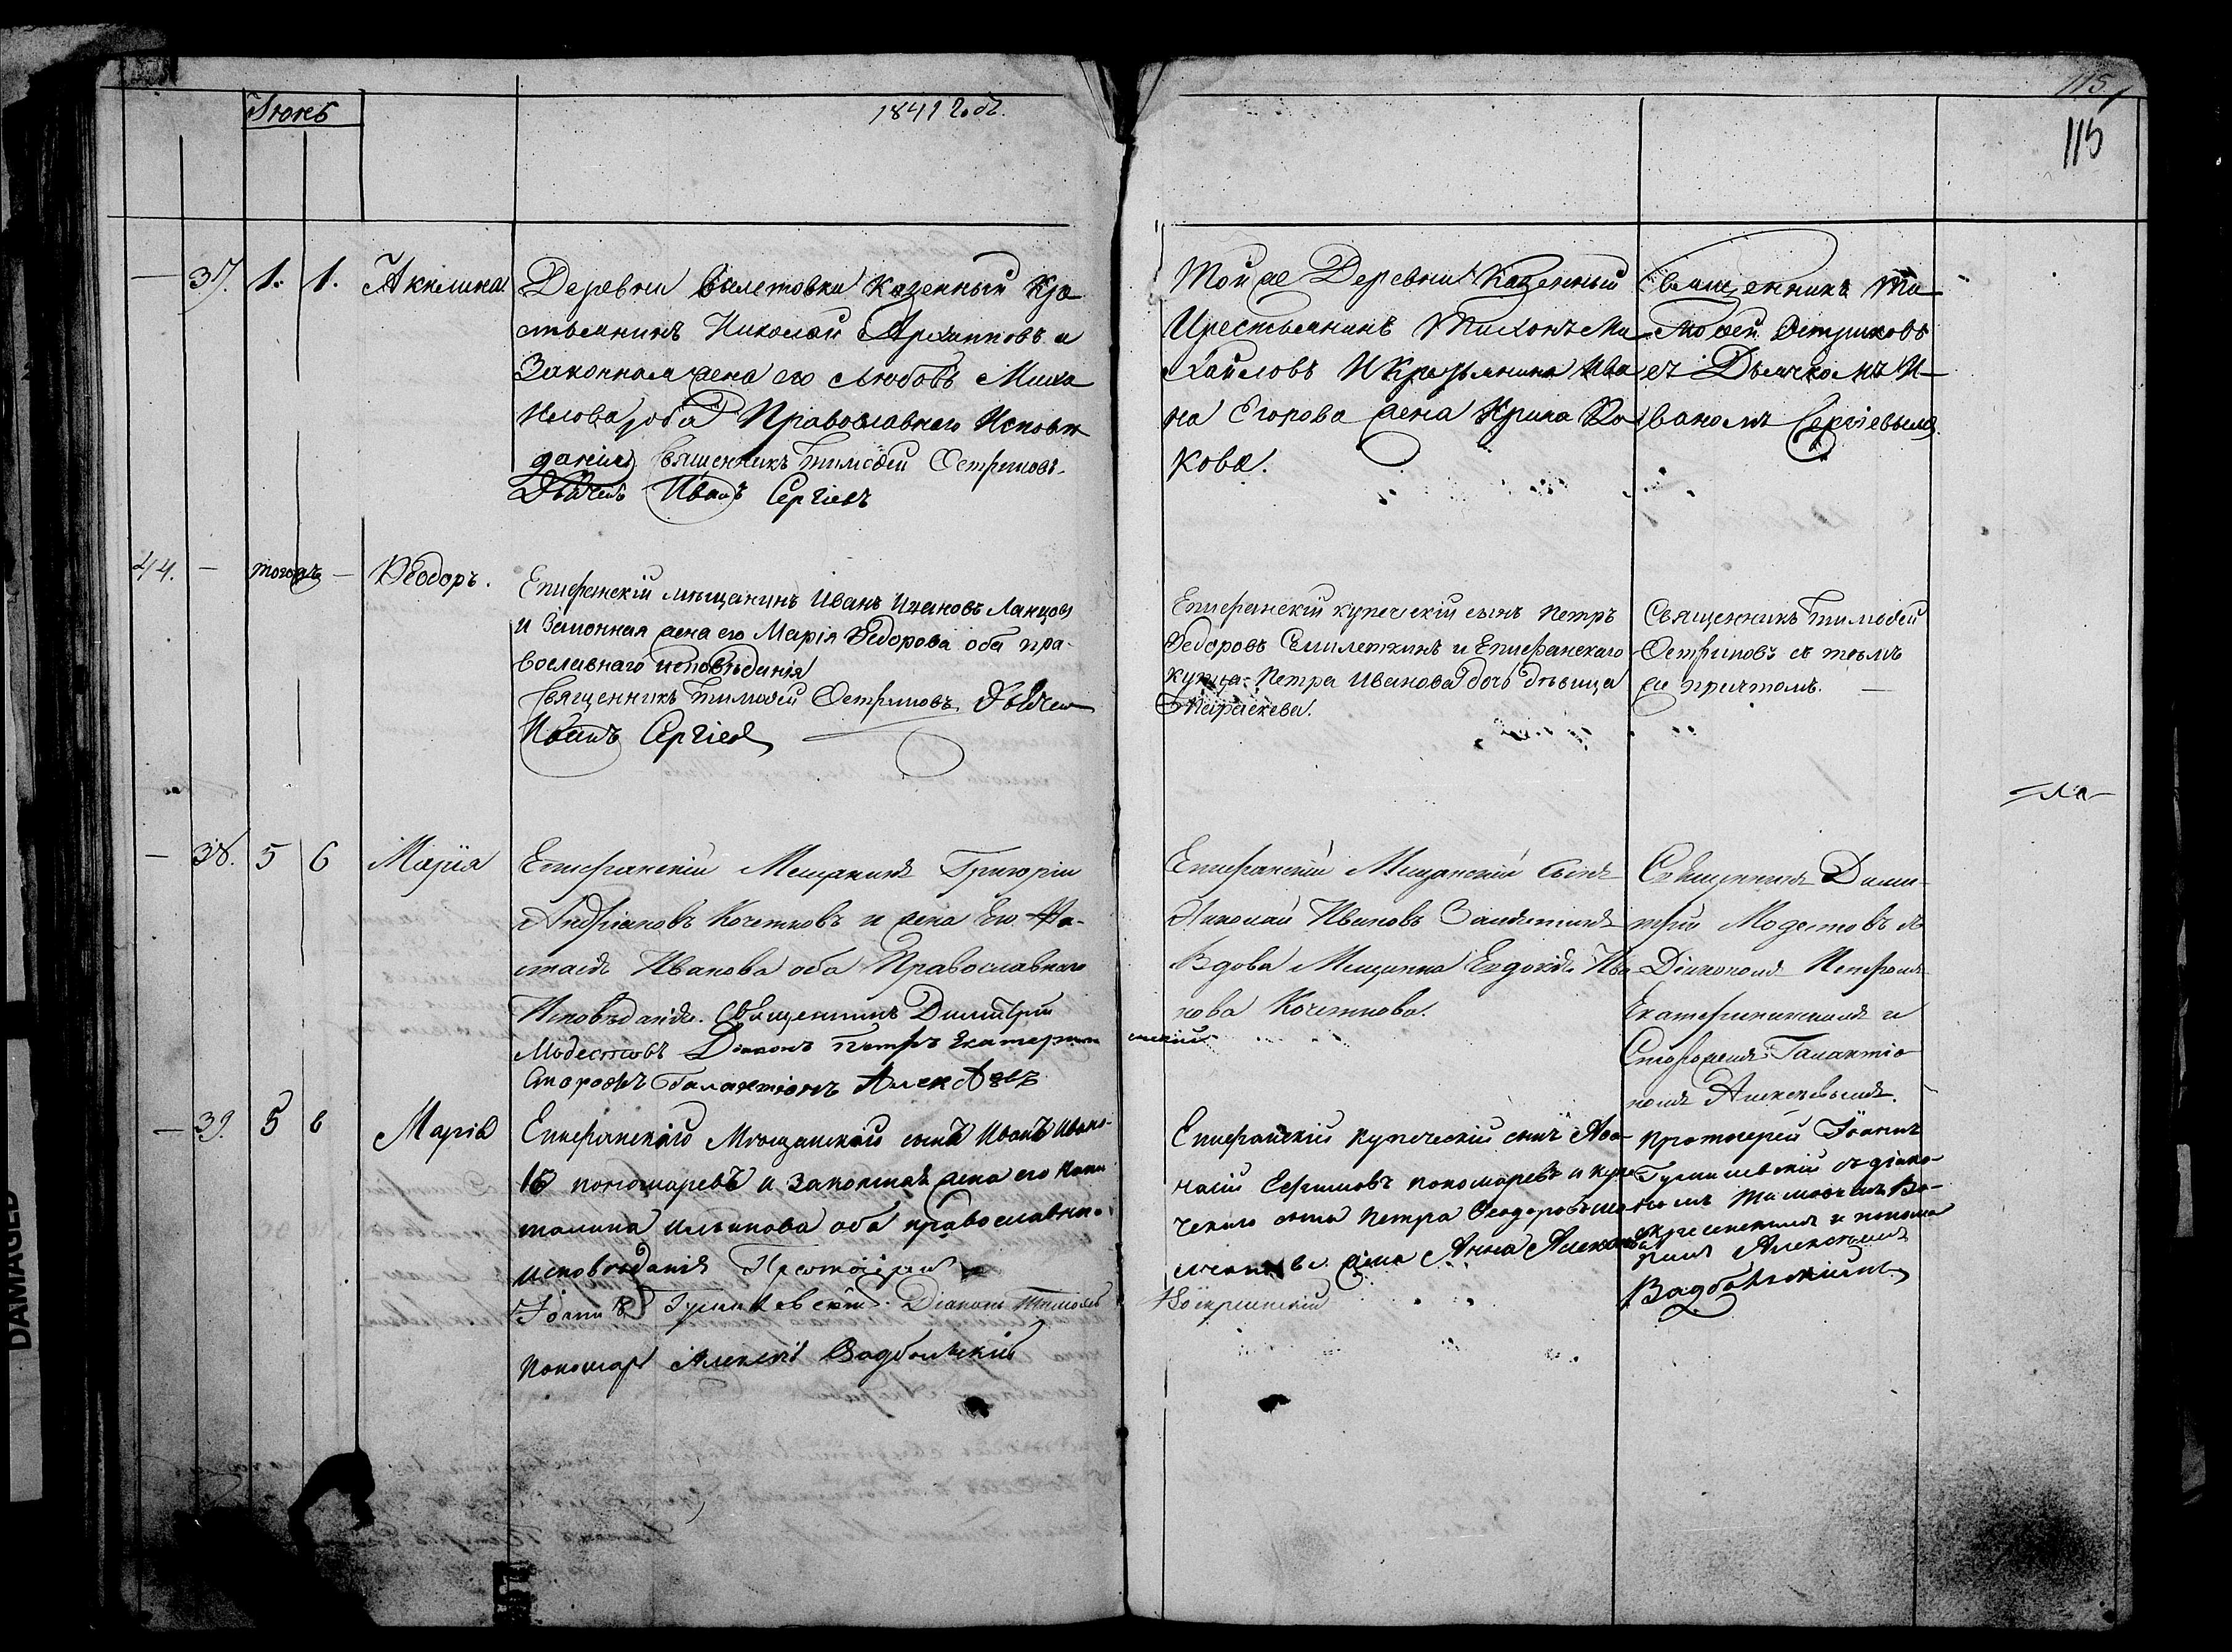 115
115
1841 годъ.
37. 1. 1. Акилина
Деревни Кра
стьянинъ Николай Архиповъ и
Законная жена его Любовь Миха
илова оба Православнаго Исповѣ
данія Священникъ Тимоѳей Остриковъ.
Дьячекъ Иванъ Сергіевъ
Тойже Деревни Казенный
Крестьянинъ Тихонъ Ми
хайловъ И Ива
на Егорова жена Ирина
кова.
Священникъ Ти
моѳей Остриковъ
съ Дьячкомъ И
ваномъ Сергіевымъ.
44. — тогожъ — Ѳеодоръ.
Епифанскій мѣщанинъ Иванъ Ивановъ
и Законная жена его Марія Ѳедорова оба пра-
вославнаго исповѣданія
Священникъ Тимоѳей Остриковъ. Дьячекъ
Иванъ Сергіевъ
Епифанскій купеческій сынъ Петръ
Ѳедоровъ и Епифанскаго
купца Петра Иванова дочь дѣвица
Параскева.
Священникъ Тимоѳей
Остриковъ съ тѣмъ
же причтомъ.
— 38. 5 6 Марія
Епифанскій Мещанинъ Григорій
Андріановъ Кочетковъ и жена Его
Иванова оба Православнаго
Исповѣданія. Священникъ Димитрій
Модестовъ Діаконъ Петръ Екатеринин
скій
Сторожъ Галактіонъ Алексѣевъ
Епифанскій Мещанскій Сынъ
Николай Ивановъ
Вдова Мещанка Евдокія Ива
нова Кочеткова.
Священникъ Дими-
трій Модестовъ съ
Діакономъ Петромъ
Екатерининскимъ и
Сторожемъ Галактіо
номъ Алексѣевымъ.
— 39. 5 6 Марія
Епифанскаго Мѣщанскаго сынъ Иванъ Ивано-
въ пономаревъ и законная жена его Капи
толина Ильинова оба православнаго
исповѣданія Протоіерей
Іоаннъ Діаконъ Тимоѳей
Воскресенскій
пономарь Алексѣй Вадбольскій
Епифанскій купеческій сынъ Аѳа-
насій Ефимовъ пономаревъ и купе
ческаго сына Петра Ѳеодорова
жена Анна
протоіерей Іоаннъ
съ діако-
номъ Тимоѳеемъ Во-
скресенскимъ и понома
ремъ Алексѣемъ
Вадбольскимъ.